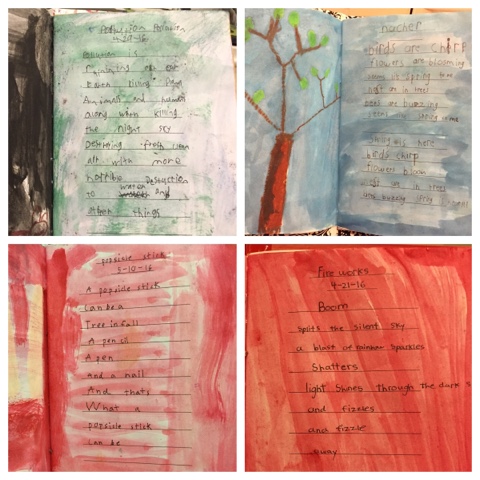 Pollution Pollution
Pollution is
our
Earth living
Animals and human
along when killing
the night sky
Destroying fresh clean
air with more
horrible Destruction
to water and
other things
birds are chirp
flowers are blooming
spring time
nest are in trees
bees are buzzing
spring time
spring is here
birds chirp
flowers bloom
in trees
popsicle stick
3-10-16
A popsicle stick
can be a
Tree in fall
A pencil
A pen
and a nail
And thats
What a
popsicle stick
can be
Fire works
4-21-16
Boom
splits the silent sky
a blast of rainbow sparkles
Shatters
light shines through the dark s
and fizzles
and fizzle
away